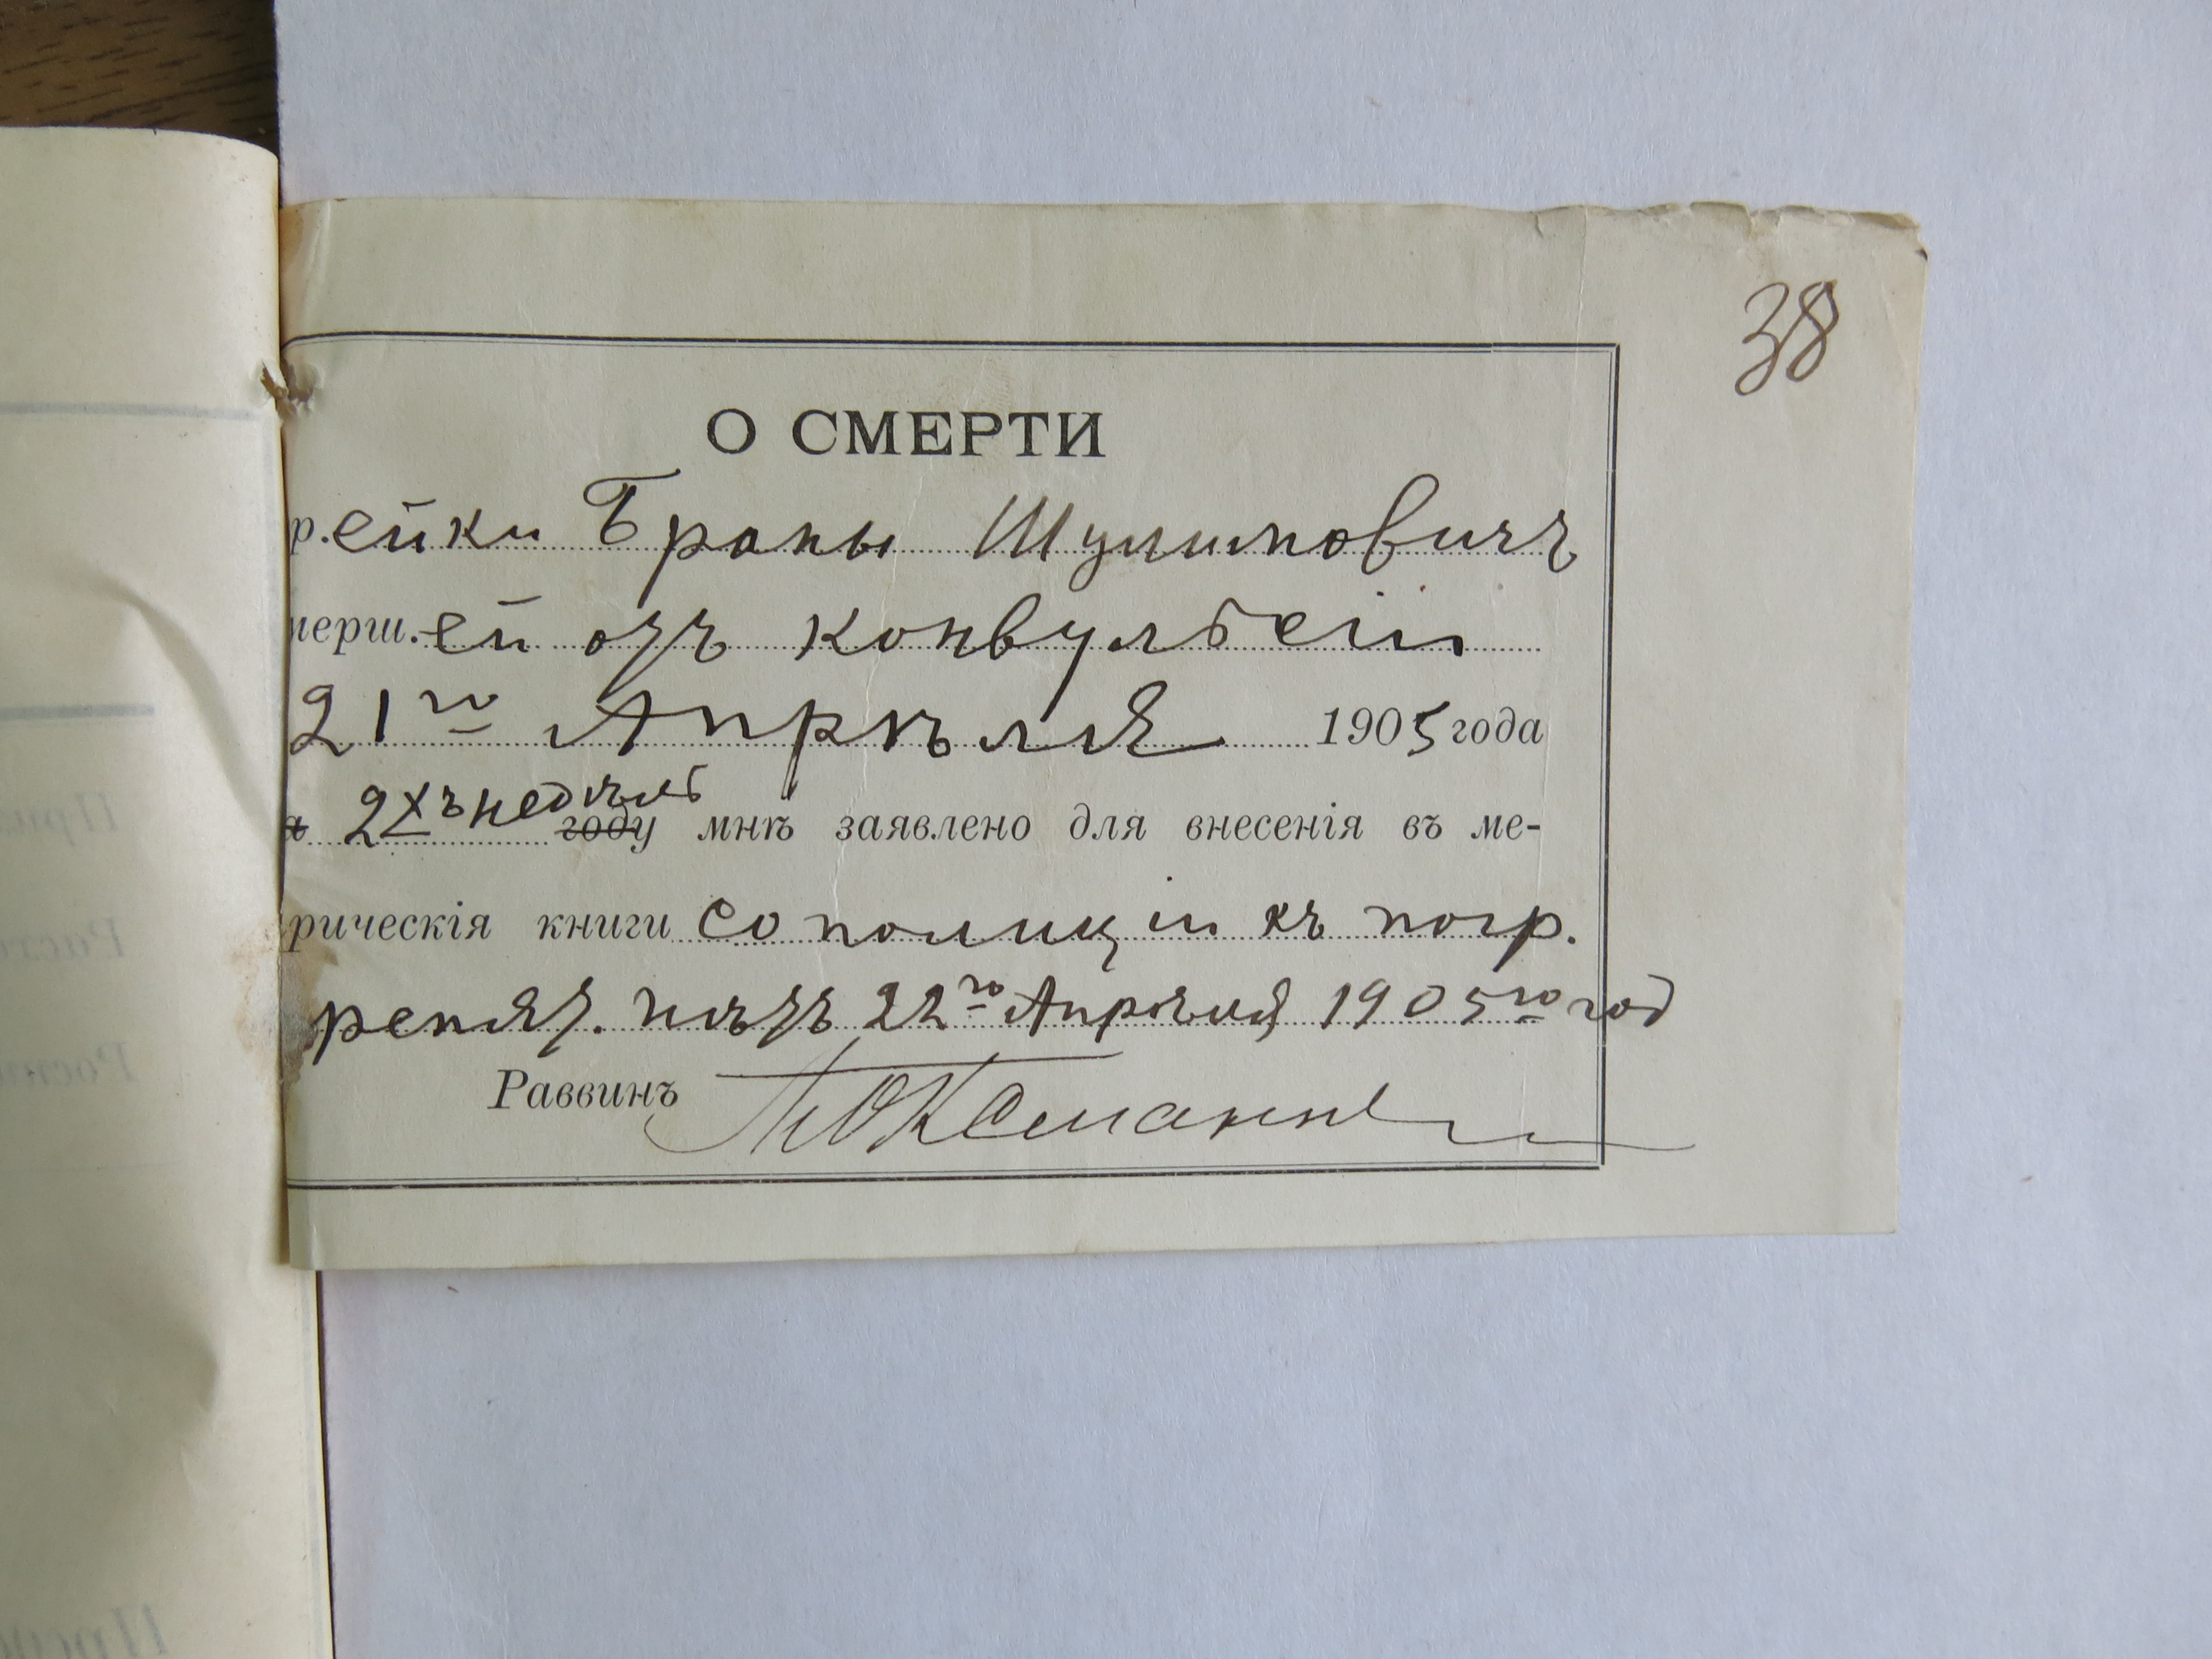 38
О СМЕРТИ
р.ейки Браны Шулимовичъ
мерш.ей отъ конвульсіи
21го Апрѣля 1905 года
а 2хъ недѣль году мнѣ заявлено для внесенія въ ме-
рическія книги со полиціи къ погр.
препят. нѣтъ 22го Апрѣля 1905го год
Раввинъ